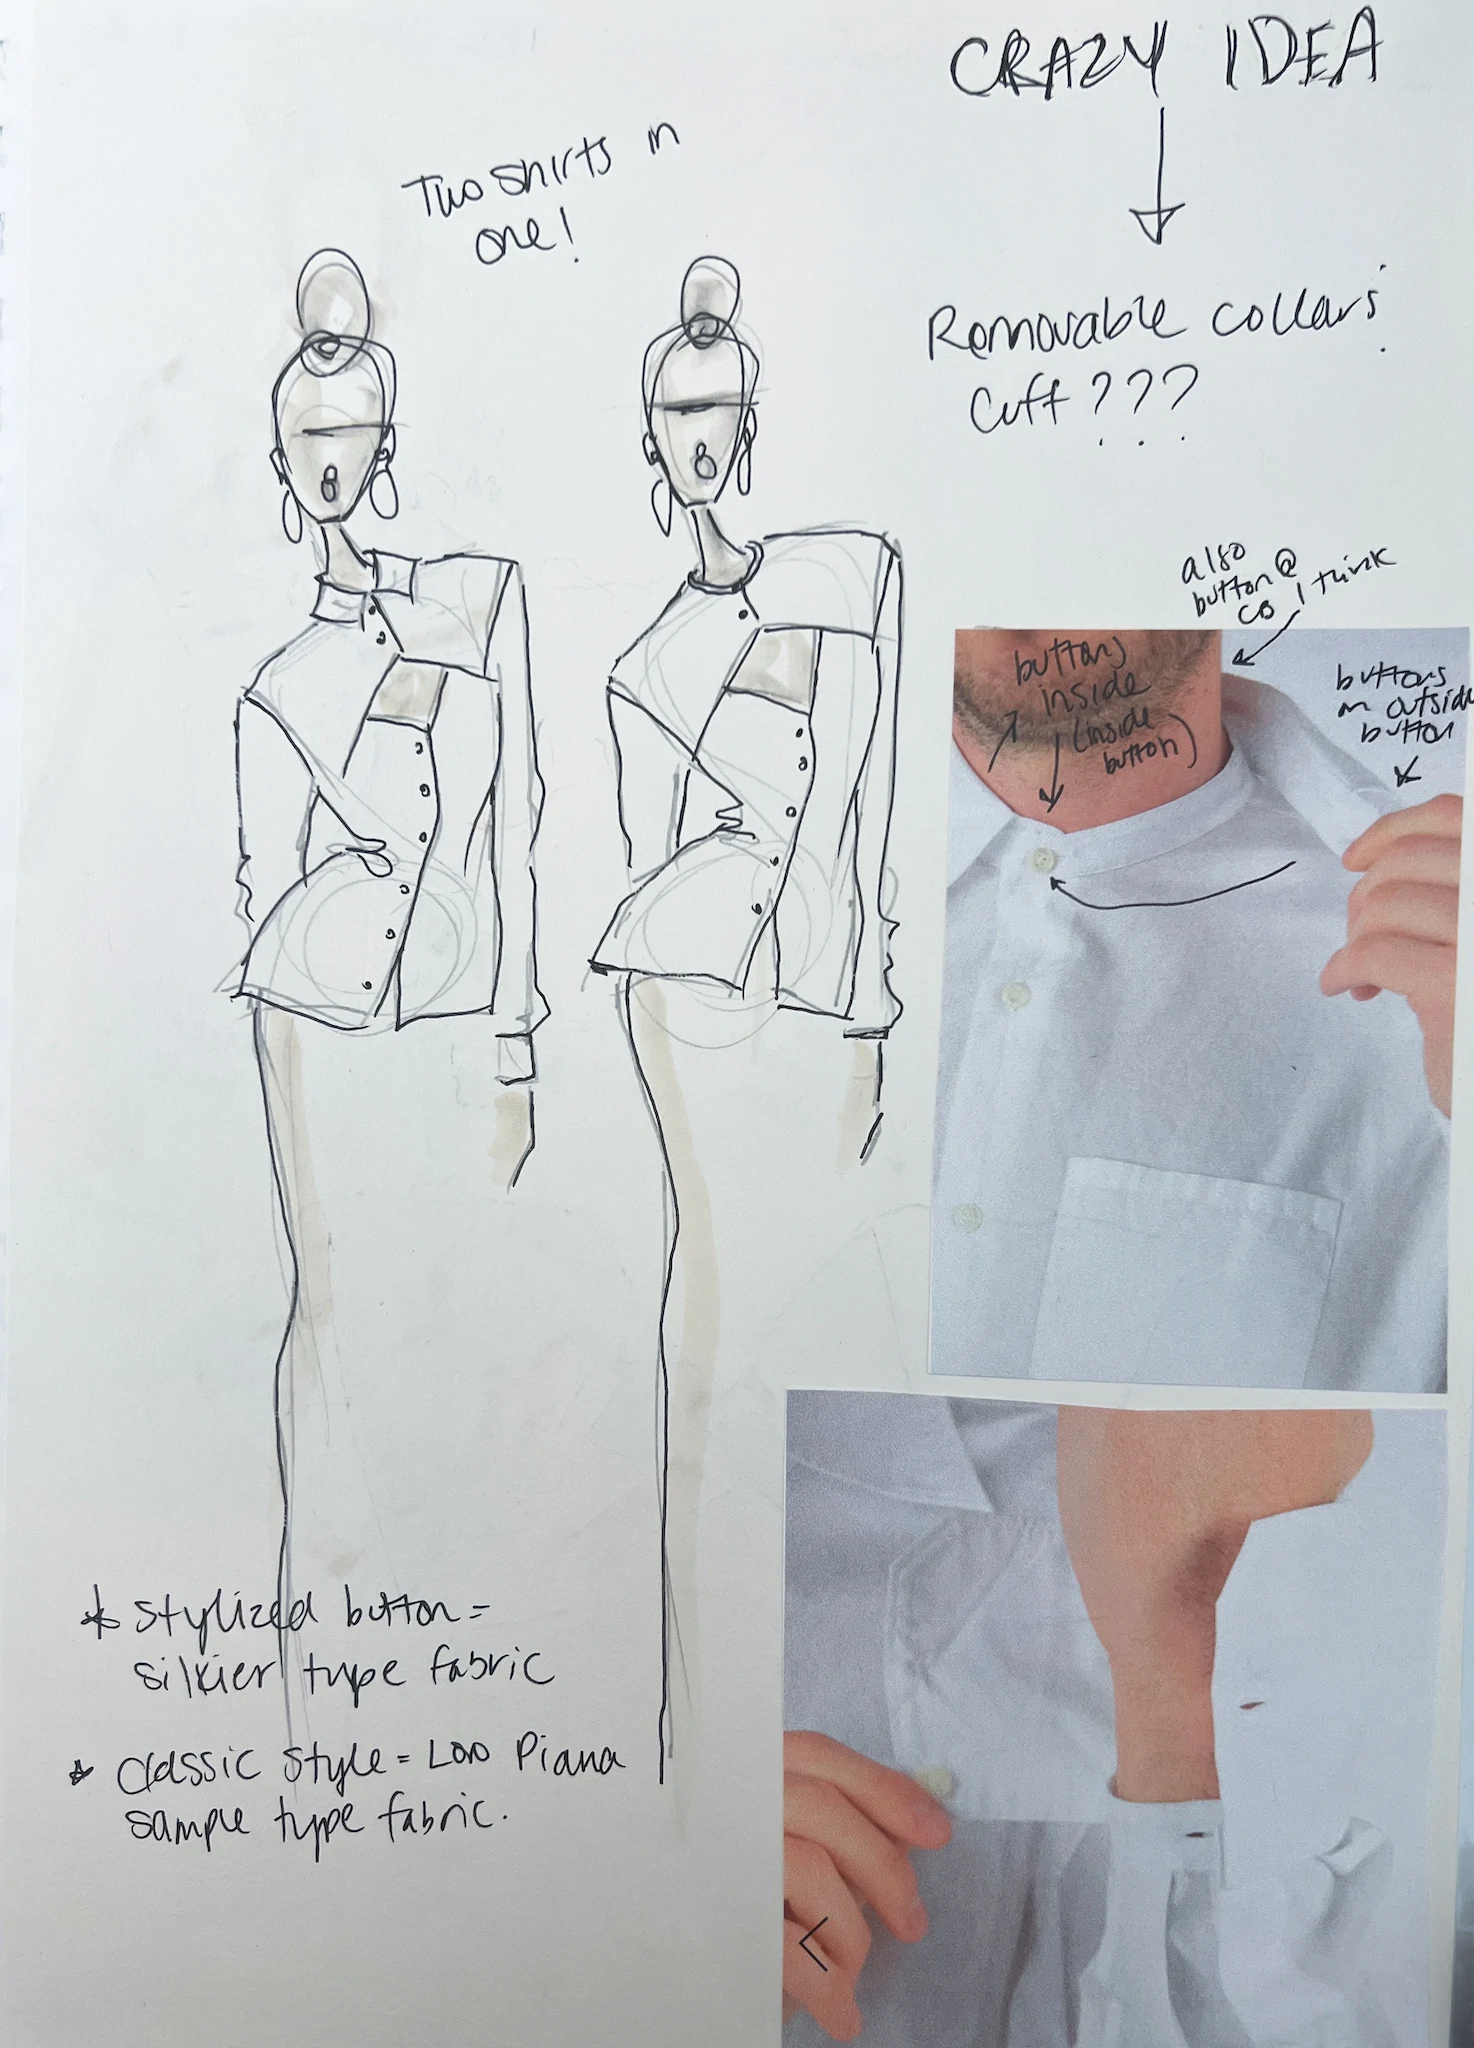 CRAZY IDEA
Two shirts in
one!
Removable collars
Cuff???
also
button @
CB I think
buttons
inside
(inside
button)
buttons
on outside
button
* stylized button =
silkier type fabric
* classic style = Loro Piana
sample type fabric.